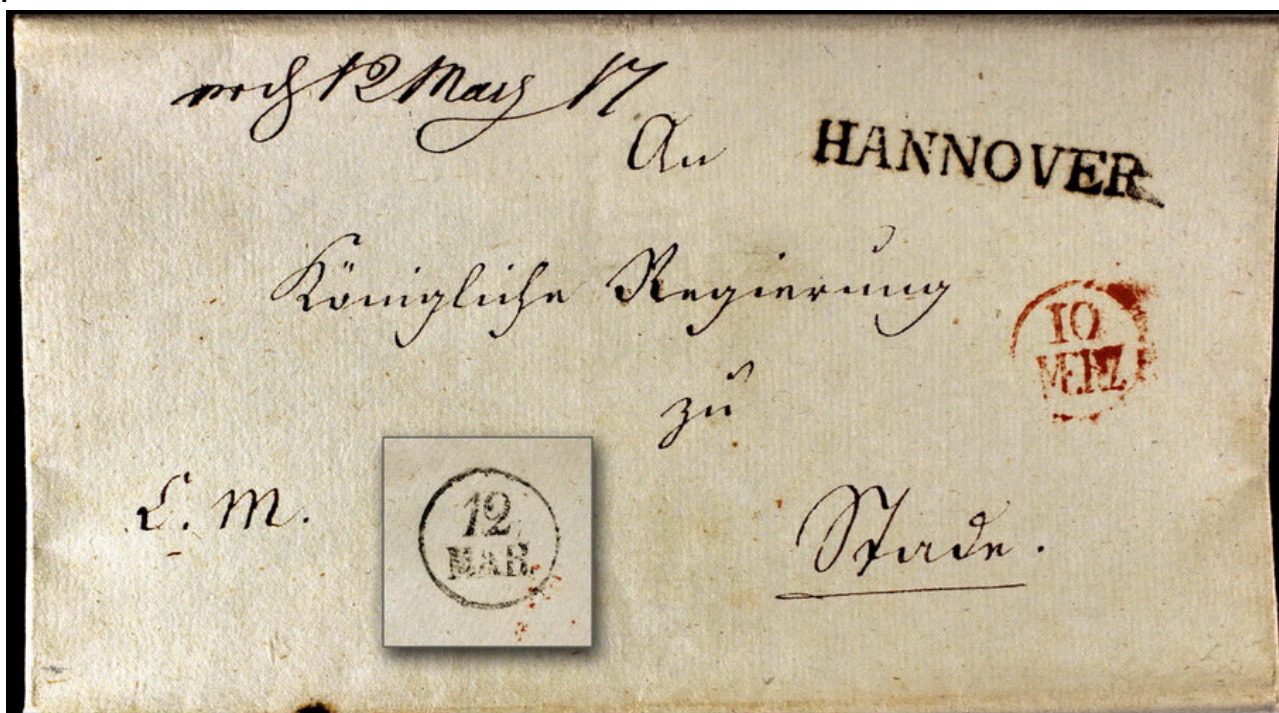 12 März 17
An
HANNOVER
Königliche Regierung
10
MERZ
zu
C. M.
12
MAR.
Stade.